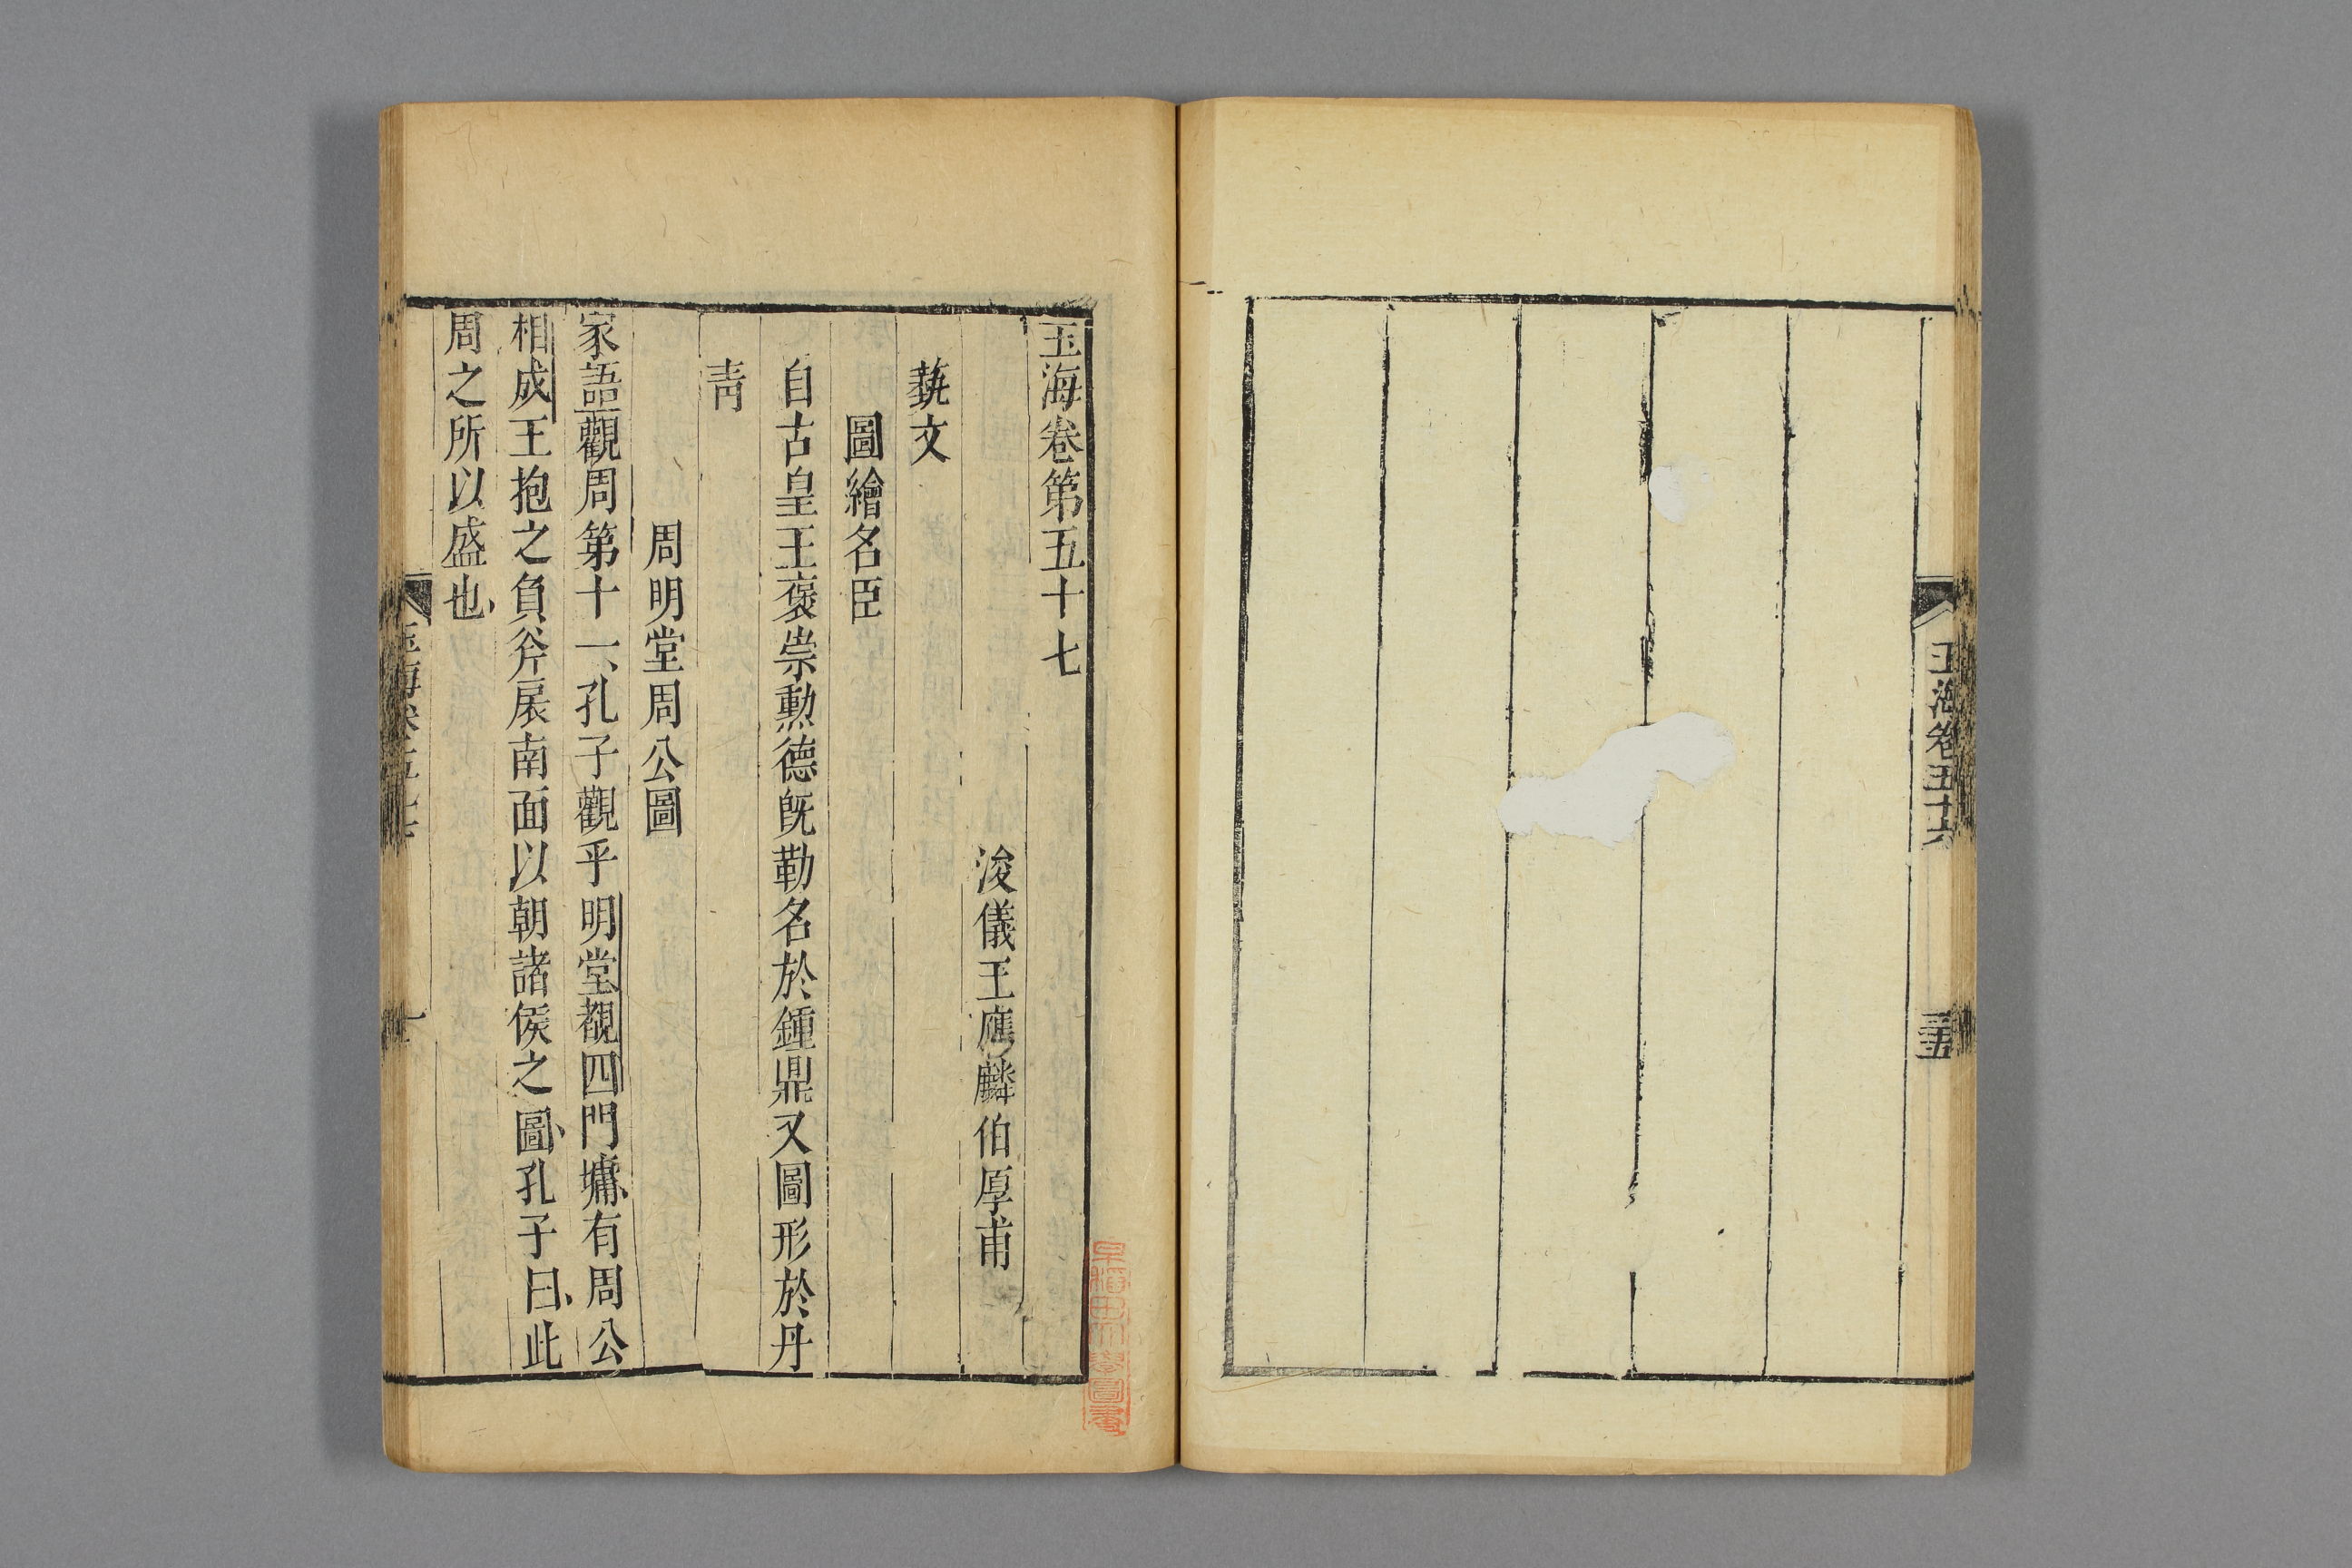 玉海卷五十六
三十五
玉海卷第五十七
浚儀王應麟伯厚甫
藝文
圖繪名臣
自古皇王褒崇勳德既勒名於鍾鼎又圖形於丹
青
周明堂周公圖
家語觀周第十一、孔子觀乎明堂覩四門墉、有周公
相成王抱之負斧扆南面以朝諸侯之圖、孔子曰、此
周之所以盛也、
玉海卷五十七
一
早稲田大學圖書